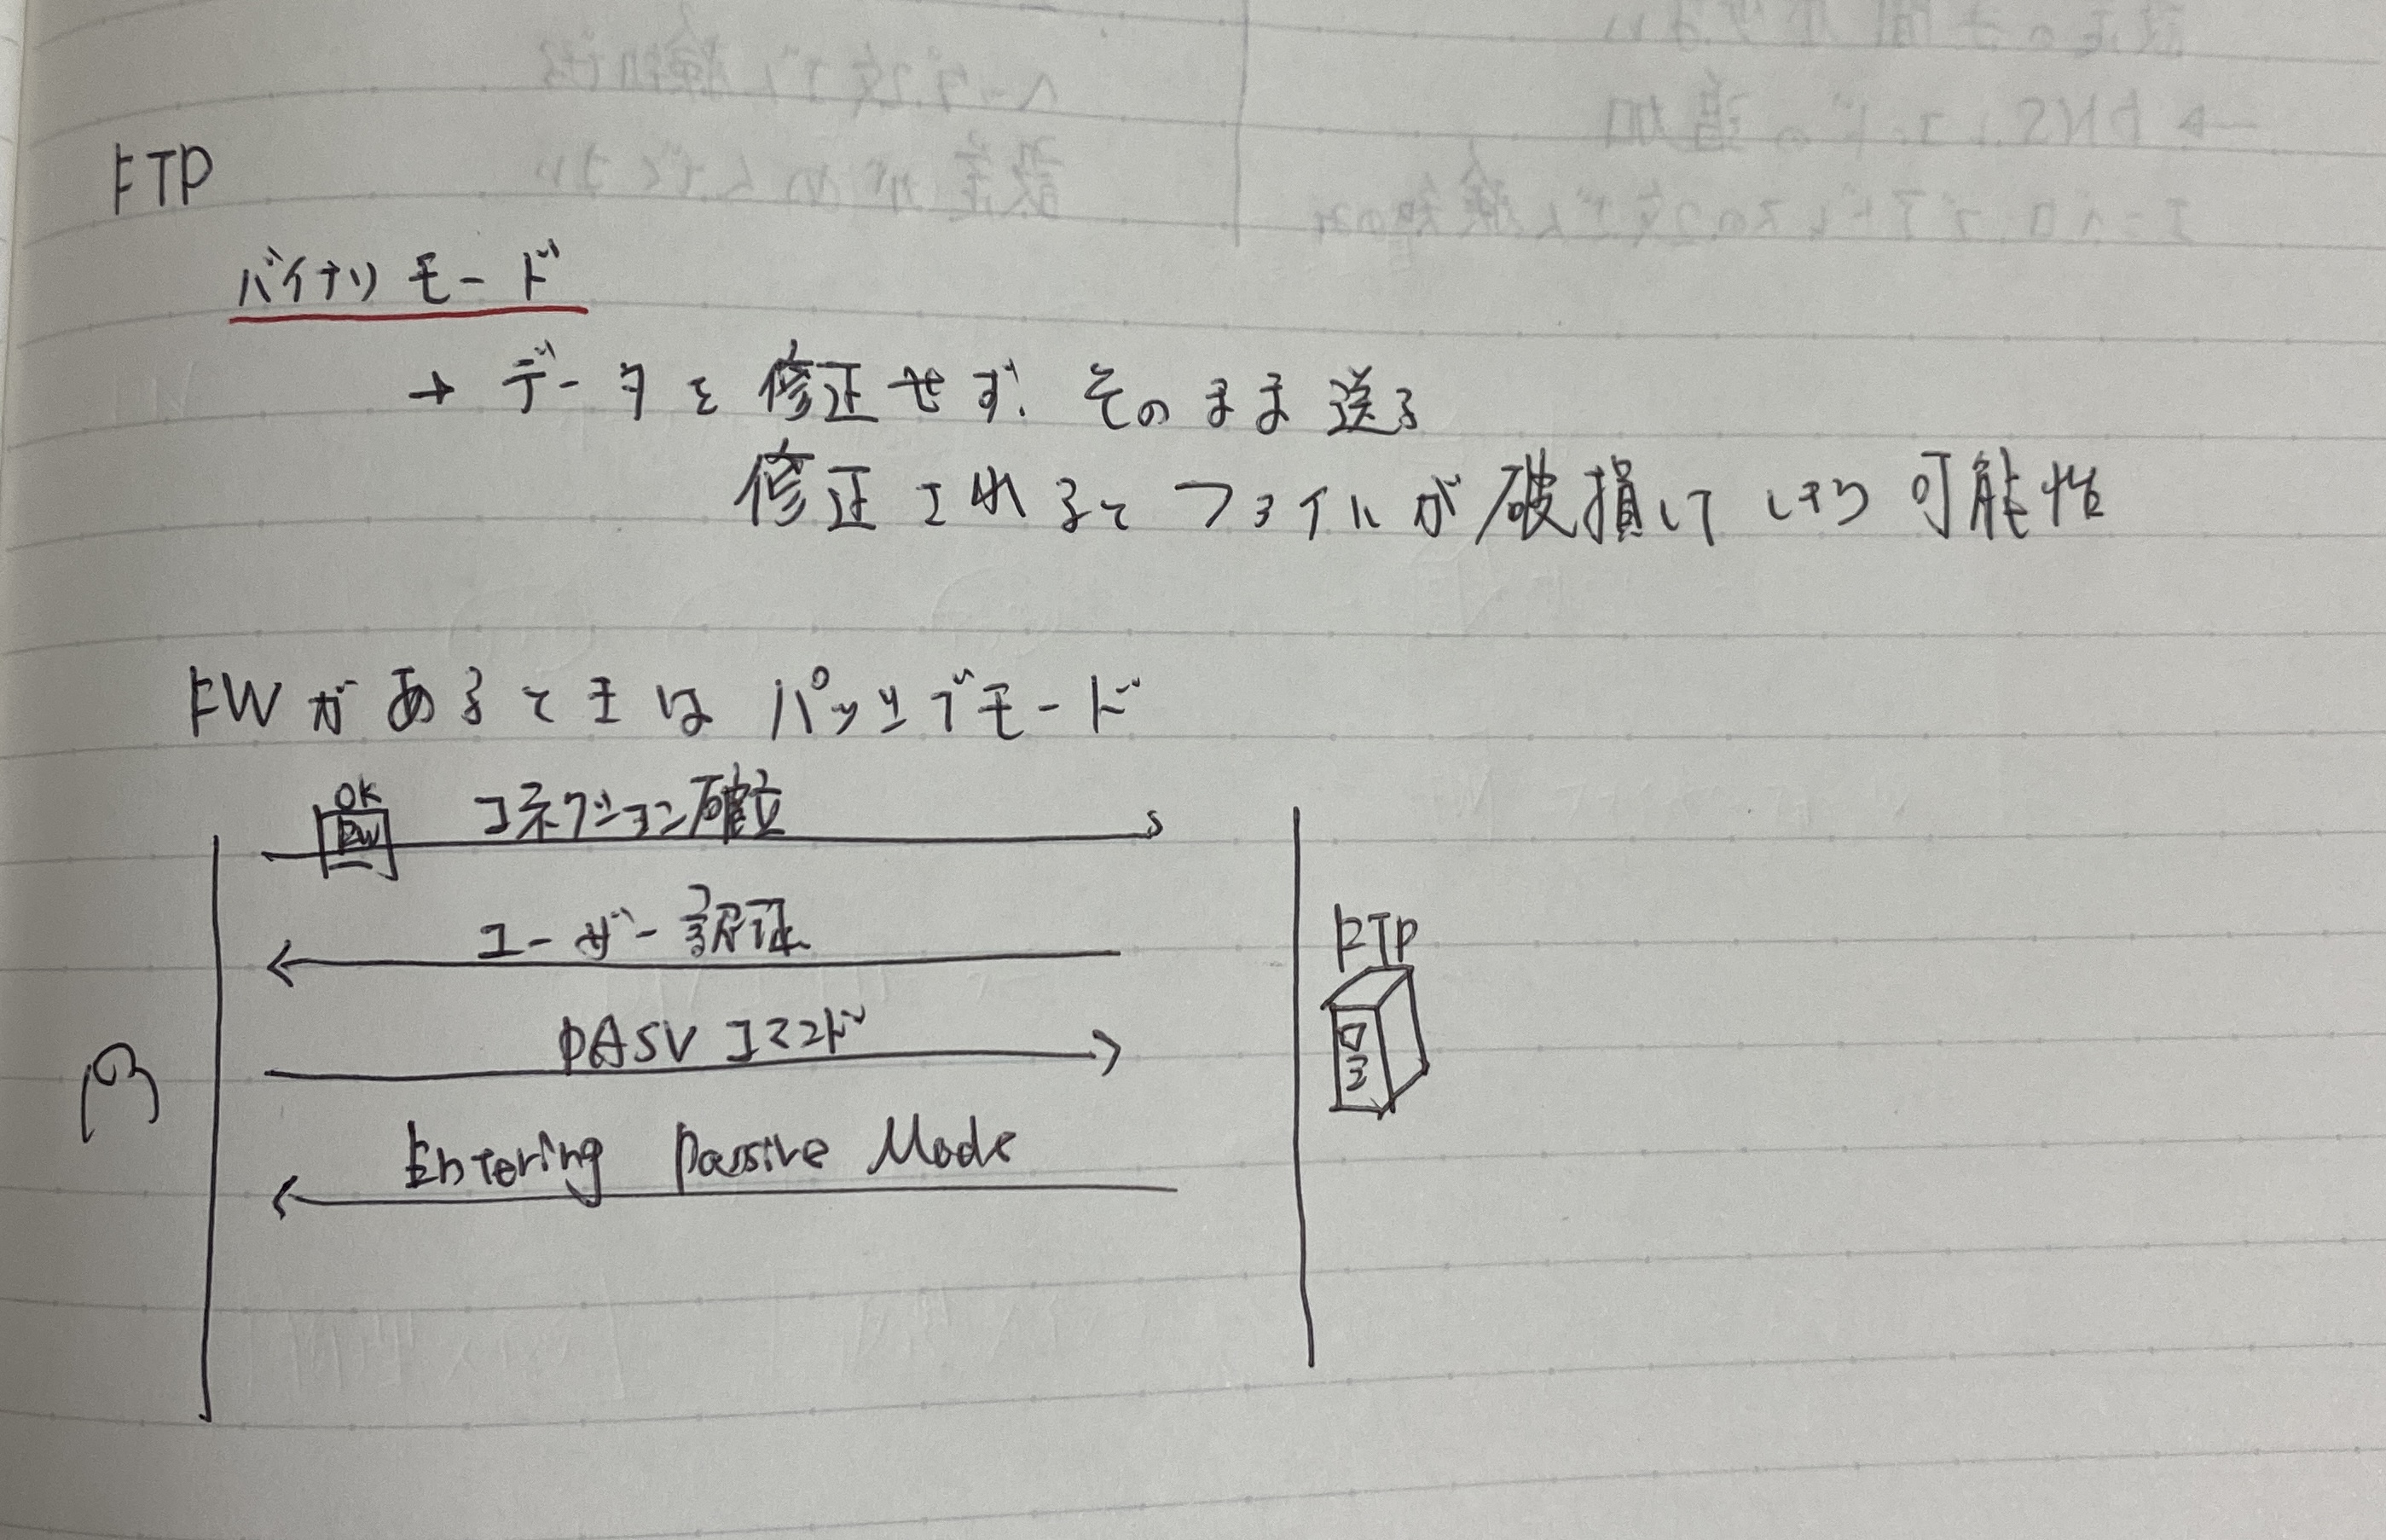 FTP
バイナリモード
→ データを修正せず、そのまま送る
修正されるとファイルが破損してしまう可能性
FWがあるときはパッシブモード
OK
FW
コネクション確立
ユーザー認証
FTP
PASV コマンド
Entering Passive Mode